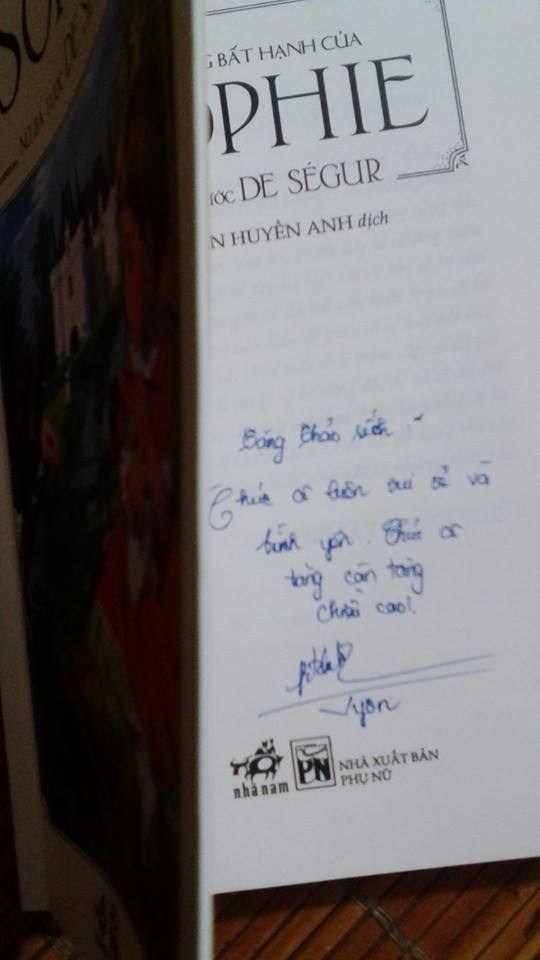 G BẤT HẠNH CỦA
OPHIE
ƯỚC DE SÉGUR
N HUYỀN ANH dịch
Tặng Thảo
Chúc luôn vui vẻ và
bình yên. Chúc
tăng cân tăng
chiều cao!
nhã nam
PN
NHÀ XUẤT BẢN
PHỤ NỮ